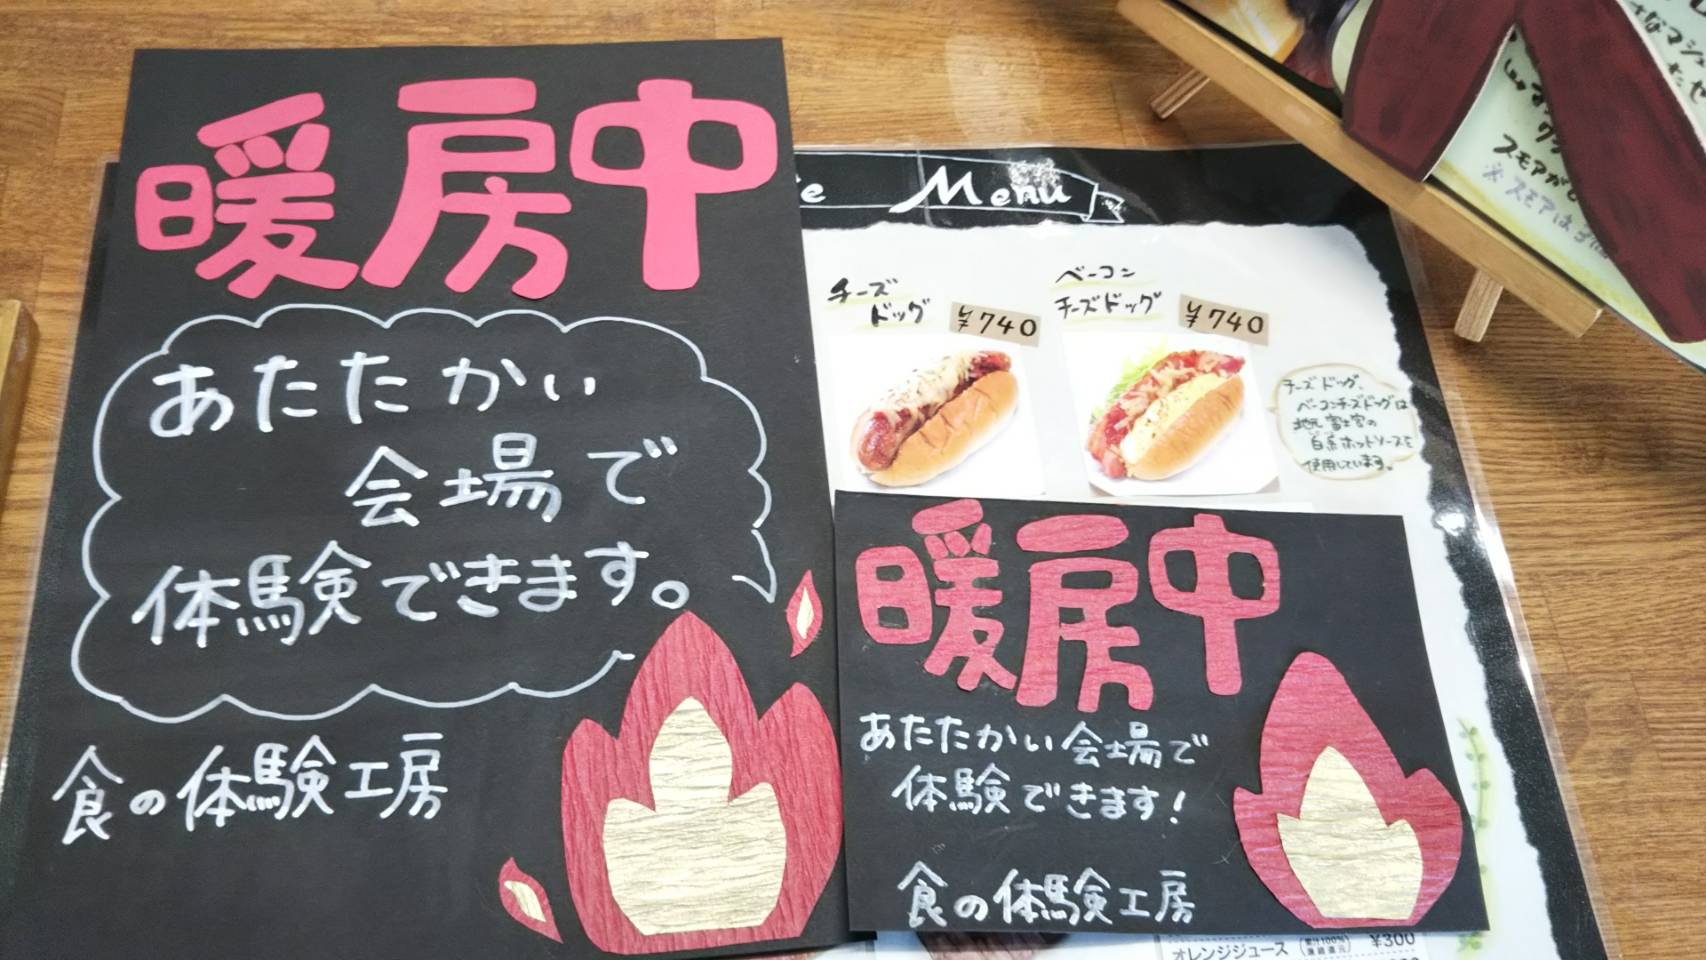 暖房中
あたたかい
会場で
体験できます。
食の体験工房
Menu
チーズ
ドッグ
¥740
ベーコン
チーズドッグ
¥740
チーズドッグ、
ベーコンチーズドッグは
地元富士宮の
白糸ホットソースを
使用しています。
暖房中
あたたかい会場で
体験できます!
食の体験工房
オレンジジュース
¥300
スモアが
※スモアは